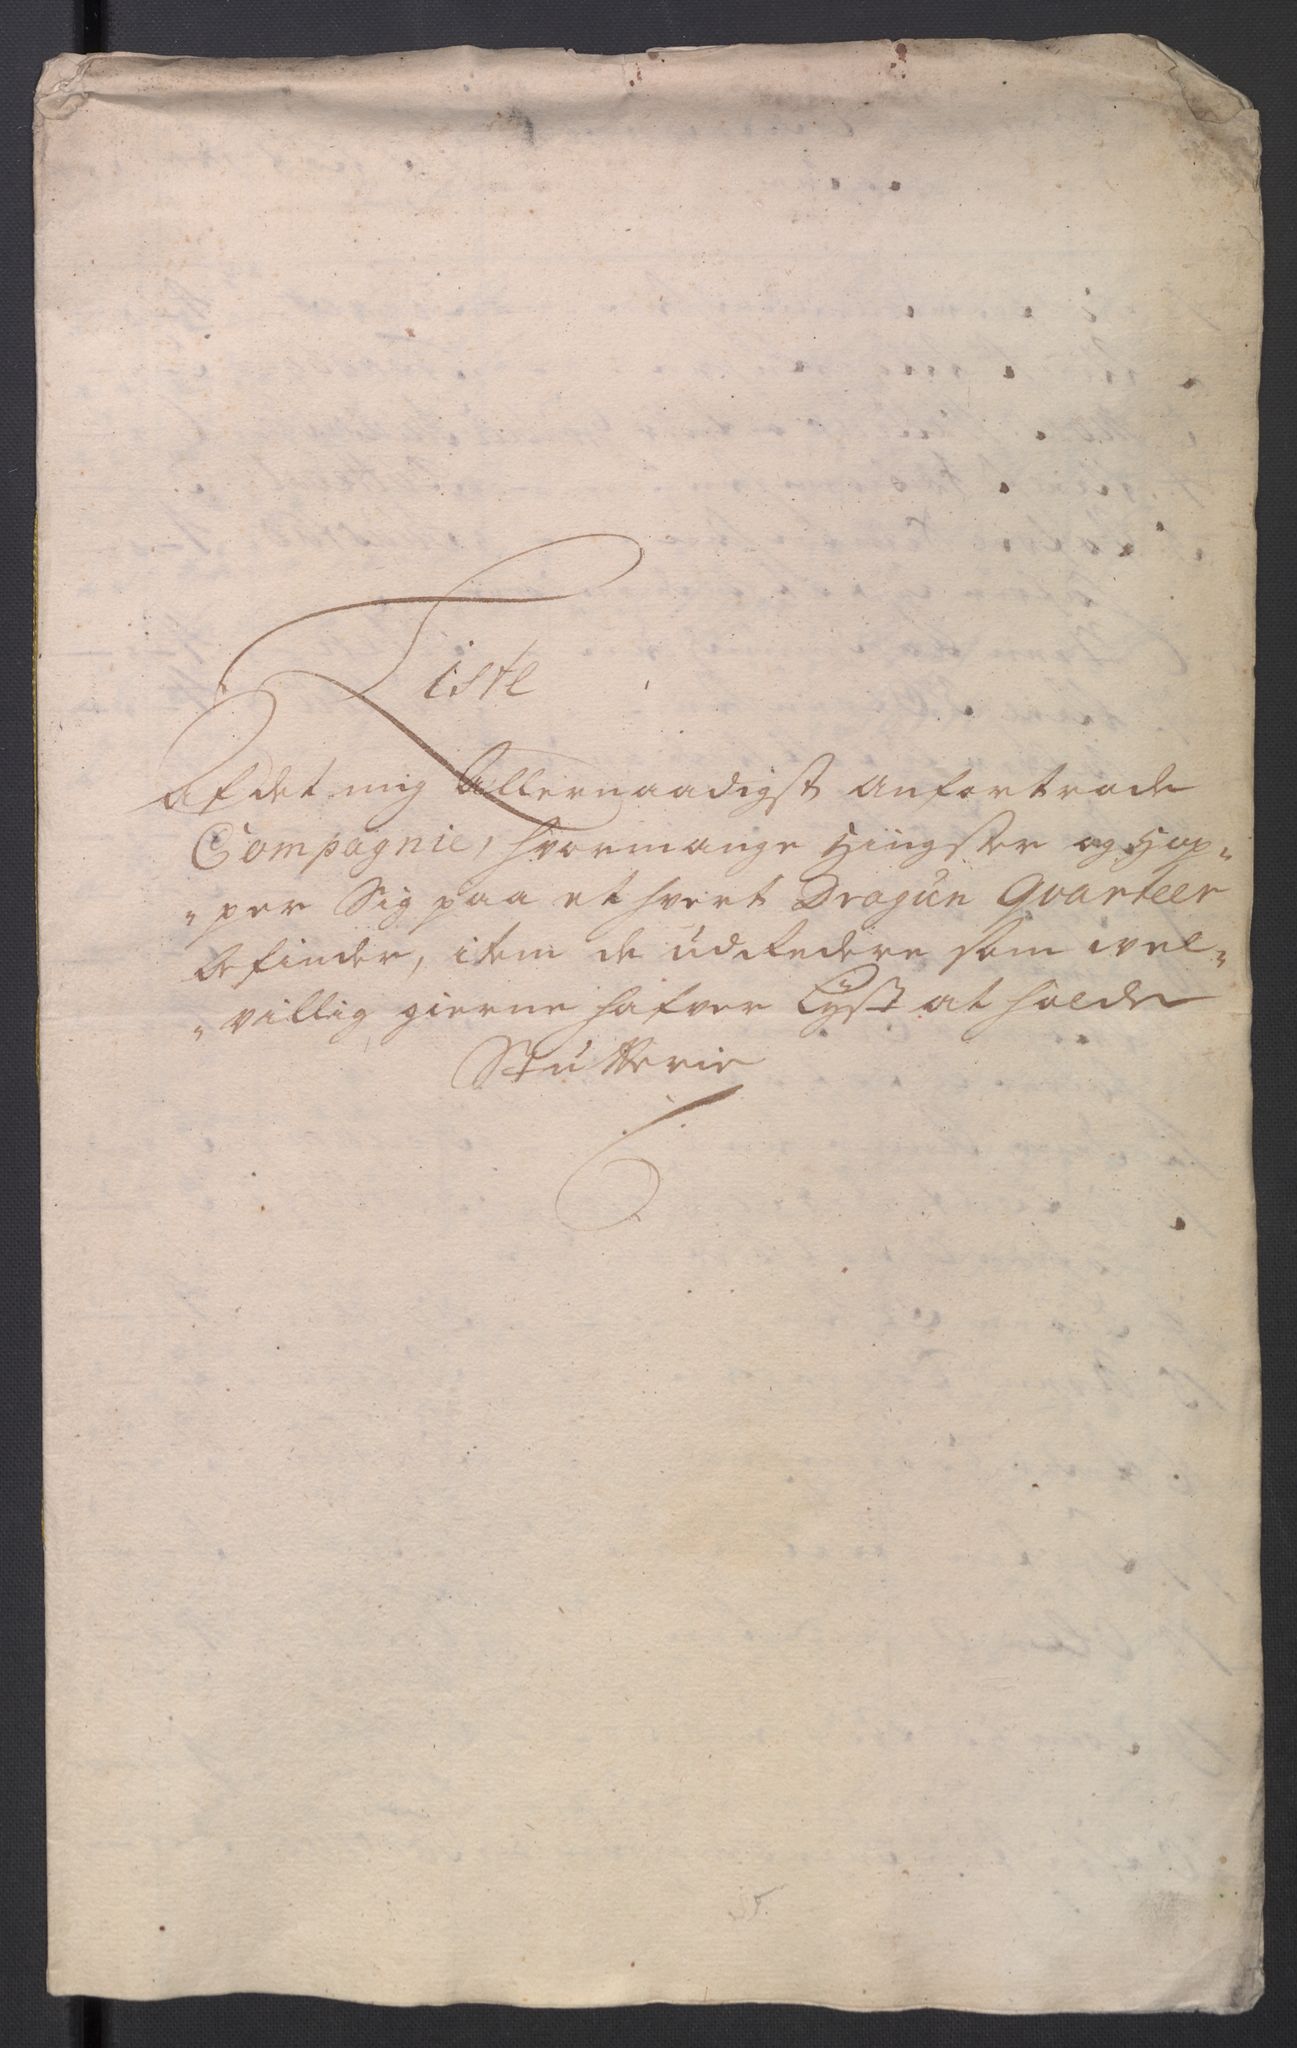 Liste
Af det mig Allernaadigst Anfortrode
Compagnie, hvormange Hingster og Hop„
„per Sig paa et hvert Dragun Qvarteer
befinder, item de udredere som wel„
„villig gierne hafver Lyst at holde
Stutterie